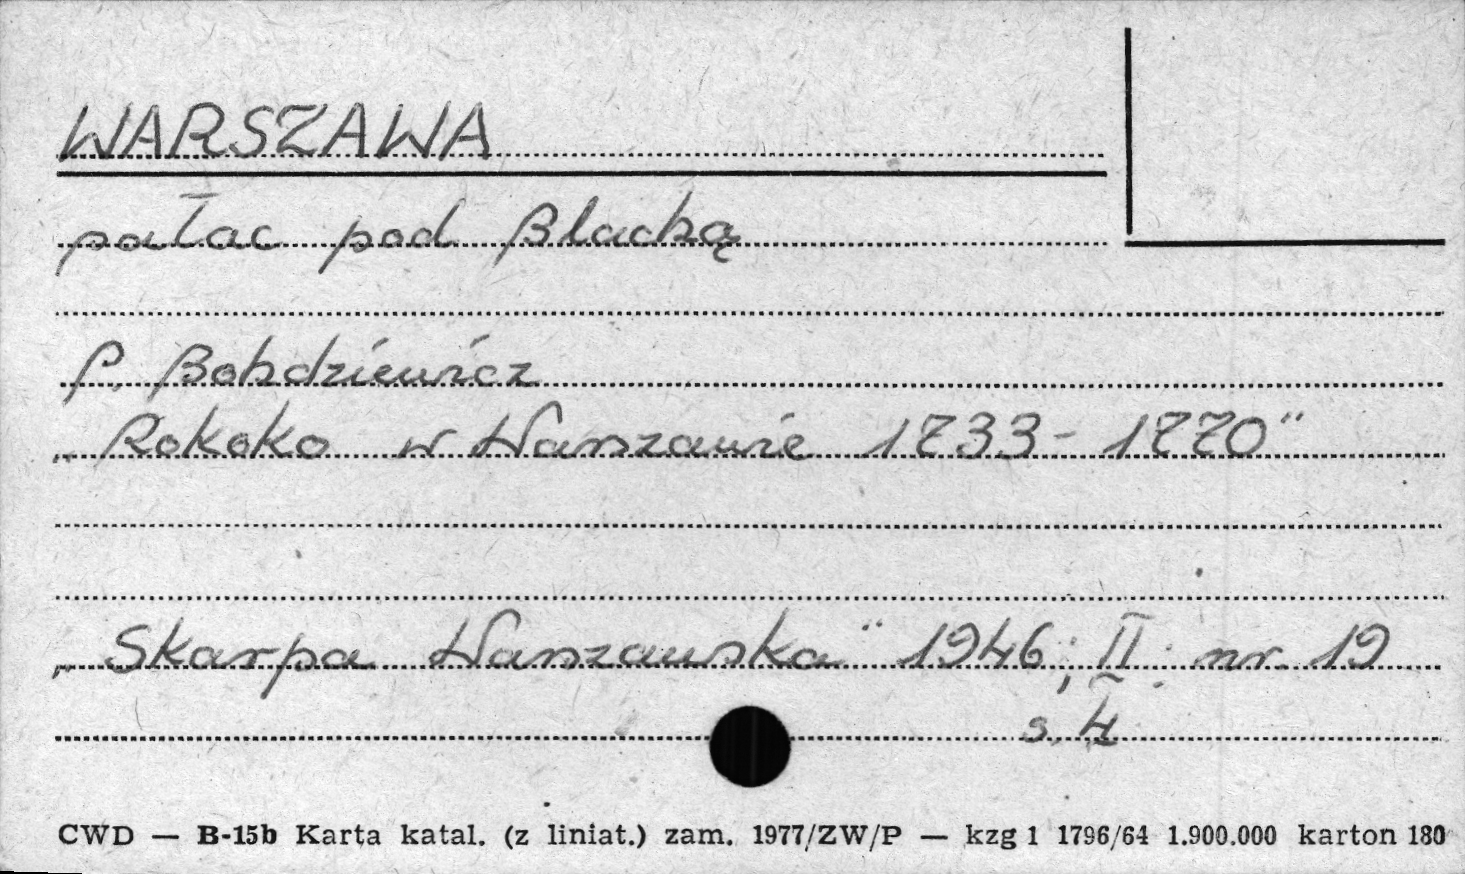 WARSZAWA
pałac pod Blachą
P. Bohdziewicz
„Rokoko w Warszawie 1733-1770"
„Skarpa Warszawska" 1946; II; nr. 19
s. 4
CWD — B-15b Karta katal. (z liniat.) zam. 1977/ZW/P — kzg 1 1796/64 1.900.000 karton 180